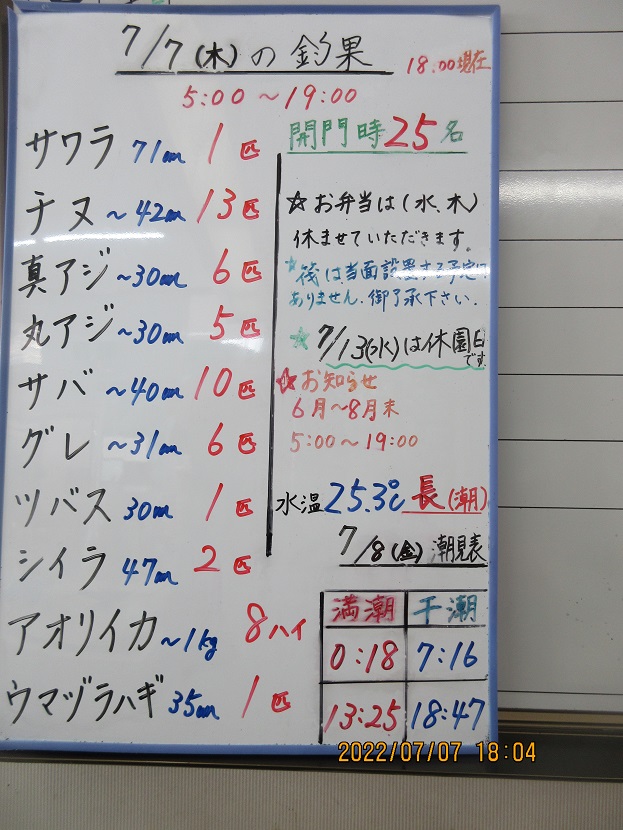 7/7(木)の釣果
18.00現在
5:00～19:00
サワラ 71cm 1匹
チヌ ～42cm 13匹
真アジ ～30cm 6匹
丸アジ ～30cm 5匹
サバ ～40cm 10匹
グレ ～31cm 6匹
ツバス 30cm 1匹
シイラ 47cm 2匹
アオリイカ ～1kg 8ハイ
ウマヅラハギ 35cm 1匹
開門時25名
☆お弁当は(水、木)
休ませていただきます。
★筏は当面設置する予定は
ありません。御了承下さい.
☆7/13(水)は休園日
です
☆お知らせ
6月～8月末
5:00～19:00
水温25.3℃ 長(潮)
7/8(金)潮見表
満潮 干潮
0:18 7:16
13:25 18:47
2022/07/07 18:04